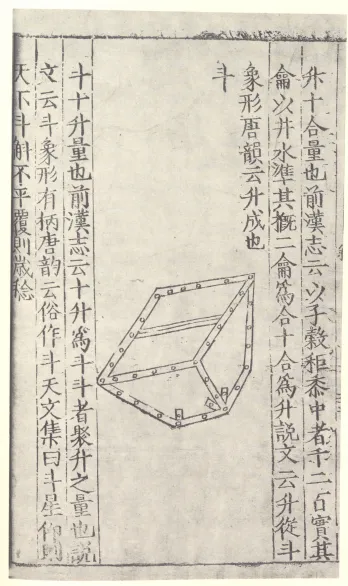 升十合量也前漢志云以子穀秬黍中者千二百實其
龠以井水準其槩二龠爲合十合爲升說文云升從斗
象形唐韻云升成也
斗
斗十升量也前漢志云十升爲斗斗者聚升之量也說
文云斗象形有柄唐韵云俗作斗天文集曰斗星仰則
天下斗斛不平覆則歲稔